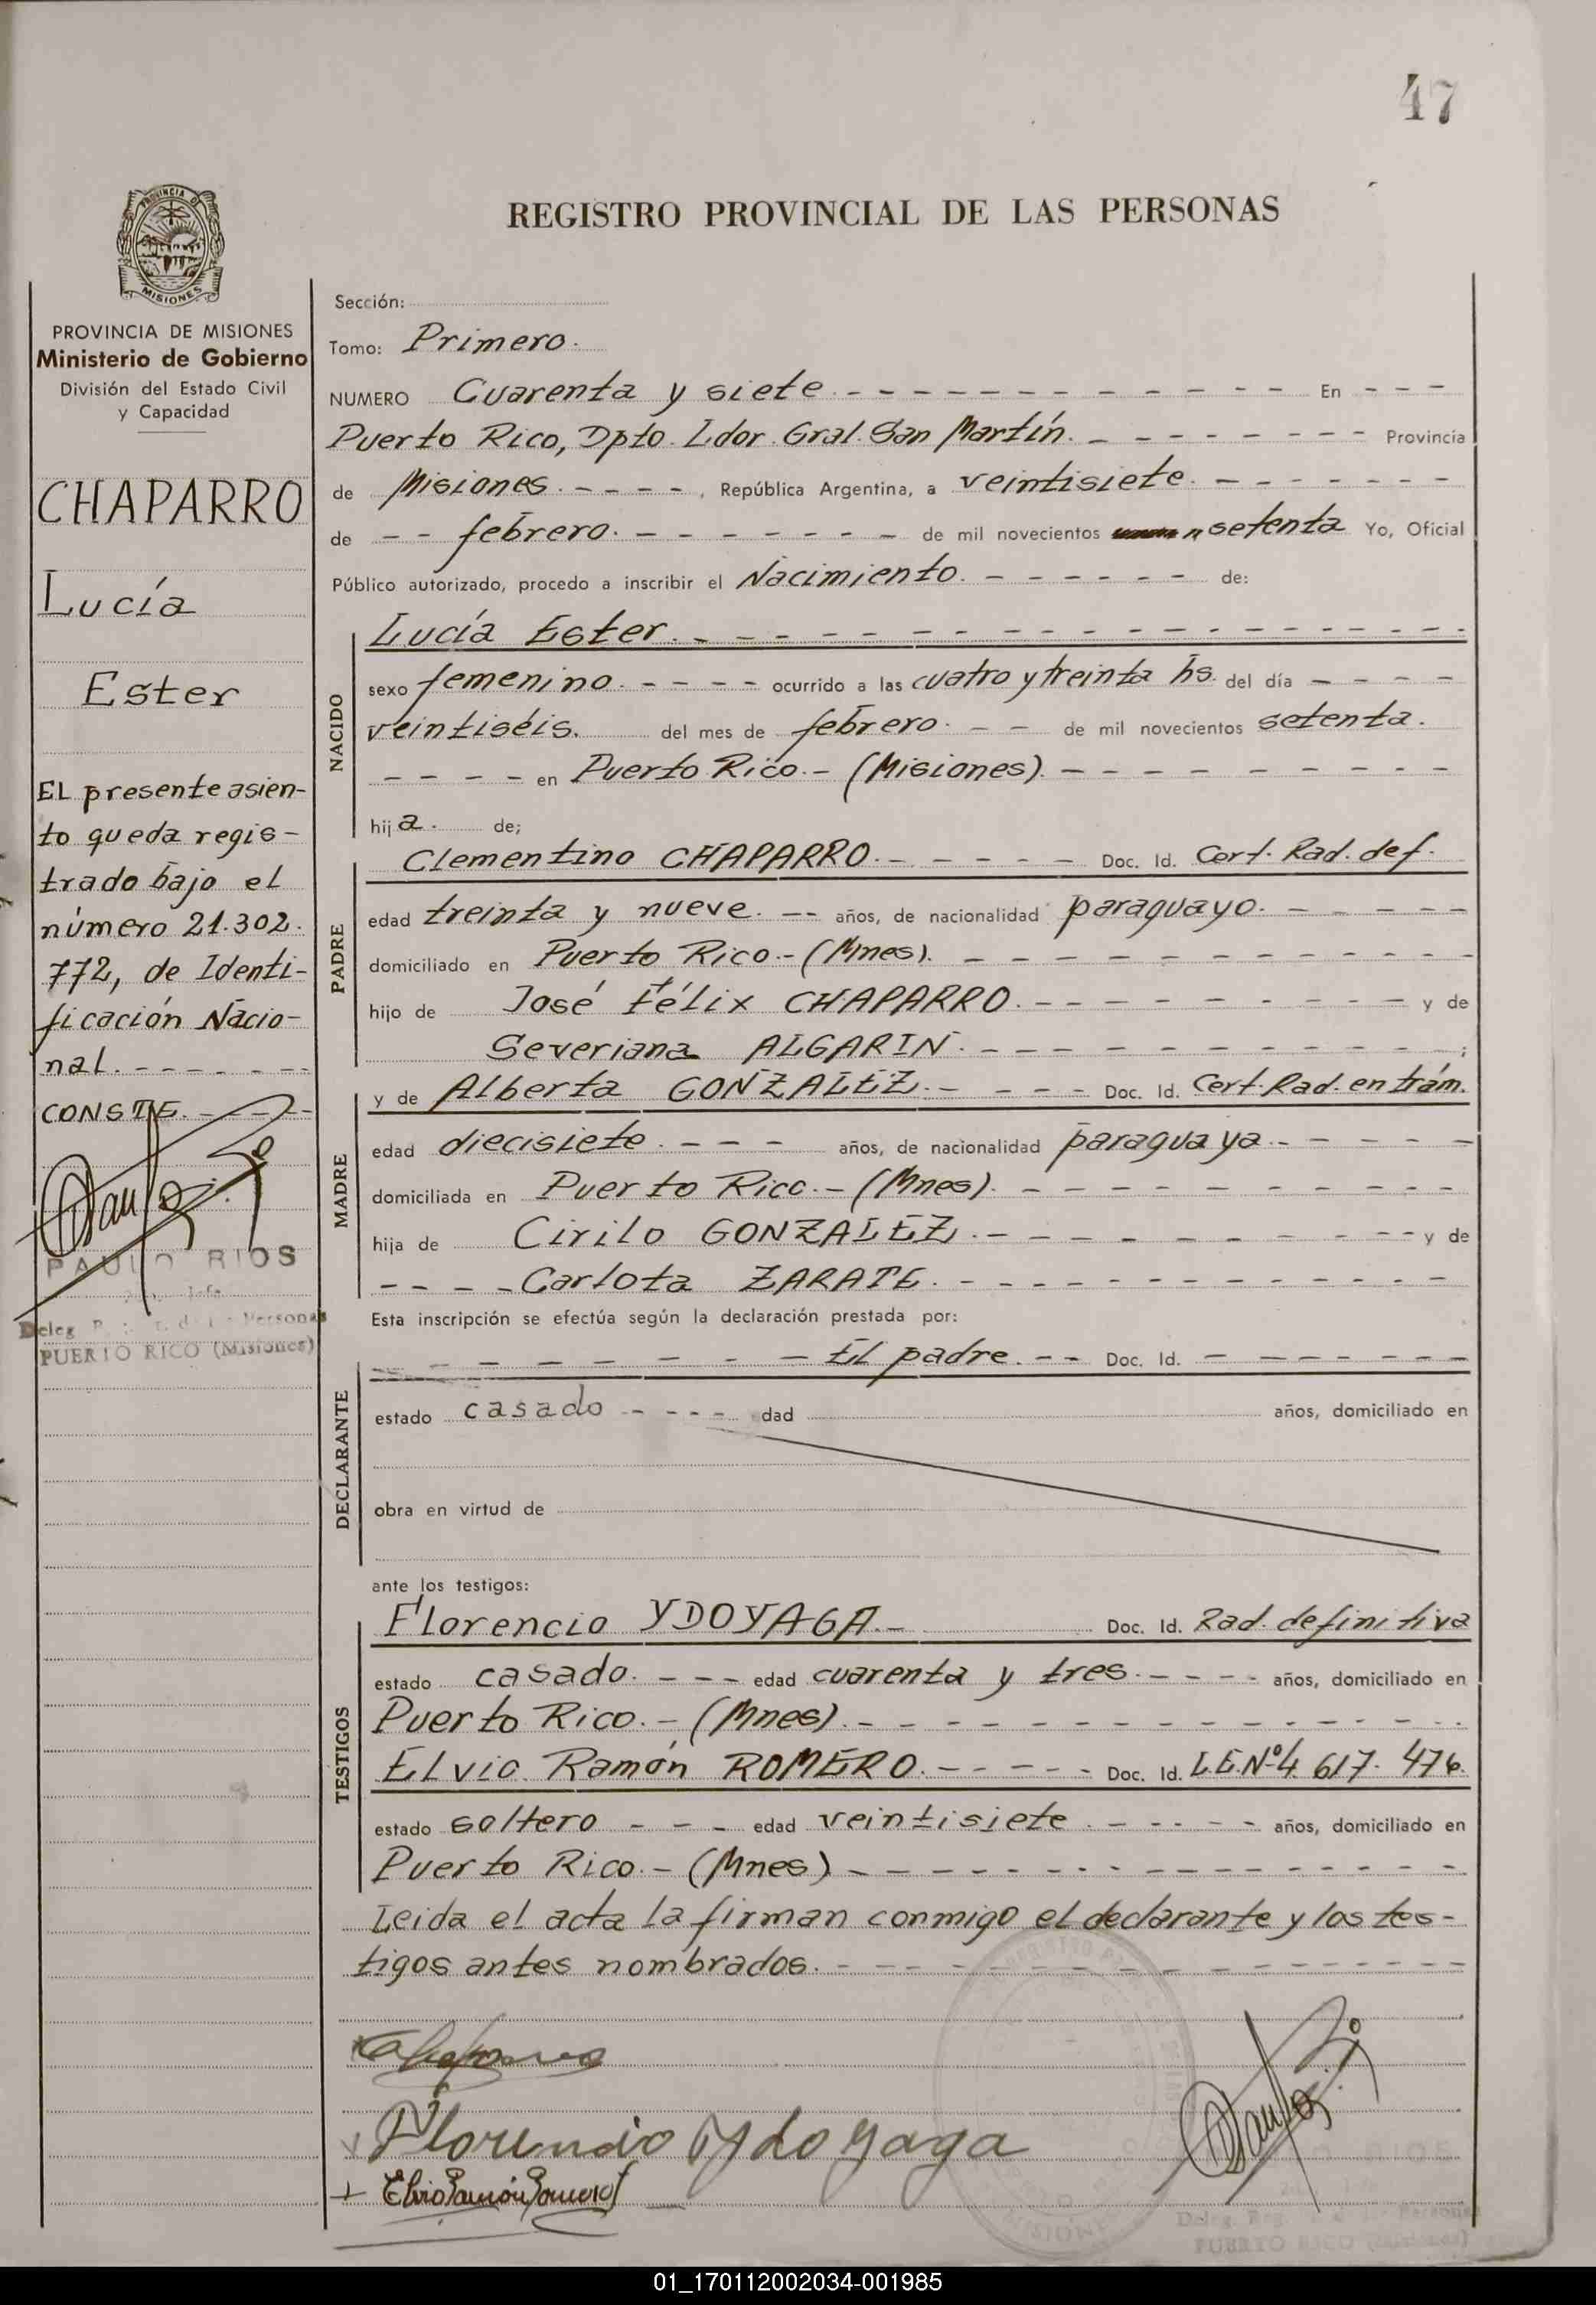 47
PROVINCIA DE MISIONES
REGISTRO PROVINCIAL DE LAS PERSONAS
PROVINCIA DE MISIONES
Ministerio de Gobierno
División del Estado Civil
y Capacidad
CHAPARRO
Lucía
Ester
EL presente asien-
to queda regis-
trado bajo el
número 21.302.
772, de Identi-
ficación Nacio-
nal. - - - - - -
CONSTE. - - -
PAULO RIOS
Jefe
Deleg. Personas
PUERTO RICO (Misiones)
Sección:
Tomo: Primero.
NUMERO Cuarenta y siete. - - - - - - - - - - - En - - -
Puerto Rico, Dpto. Ldor. Gral. San Martín. - - - - - - - - Provincia
de Misiones. - - - -, República Argentina, a veintisiete. - - - - - - -
de - - febrero. - - - - - - - de mil novecientos setenta Yo, Oficial
Público autorizado, procedo a inscribir el Nacimiento. - - - - - - de:
NACIDO
Lucía Ester. - - - - - - - - - - - - - - - - - -
sexo femenino. - - - - ocurrido a las cuatro y treinta hs. del día - - - -
veintiséis. del mes de febrero. - - de mil novecientos setenta.
- - - - en Puerto Rico.- (Misiones). - - - - - - - - - -
hija. de;
PADRE
Clementino CHAPARRO. - - - - - Doc. Id. Cert. Rad. def.
edad treinta y nueve. -- años, de nacionalidad paraguayo. - - - - -
domiciliado en Puerto Rico.- (Mnes). - - - - - - - - - - - -
hijo de José Félix CHAPARRO. - - - - - - - - - y de
Severiana ALGARIN. - - - - - - - - - - ;
MADRE
y de Alberta GONZALEZ. - - - - Doc. Id. Cert. Rad. en trám.
edad diecisiete. - - - años, de nacionalidad paraguaya.- - - - -
domiciliada en Puerto Rico.- (Mnes). - - - - - - - - - - -
hija de Cirilo GONZALEZ. - - - - - - - - - - - y de
- - - - Carlota ZARATE. - - - - - - - - - - - - -
Esta inscripción se efectúa según la declaración prestada por:
DECLARANTE
- - - - - - - - El padre. -- Doc. Id. - - - - - - -
estado casado - - - - edad años, domiciliado en
obra en virtud de
ante los testigos:
TESTIGOS
Florencio YDOYAGA.- Doc. Id. Rad. definitiva
estado casado. - - - edad cuarenta y tres. - - - - años, domiciliado en
Puerto Rico.- (Mnes). - - - - - - - - - - - - - - -
Elvio Ramón ROMERO. - - - - - Doc. Id. L.E.Nº 4.617.476.
estado soltero - - - edad veintisiete. - - - - - años, domiciliado en
Puerto Rico.- (Mnes) - - - - - - - - - - - - - - -
Leida el acta la firman conmigo el declarante y los tes-
tigos antes nombrados. - - - - - - - - - - - - - - - -
Florencio Ydoyaga
Elvio Ramón Romero
Deleg. Reg. Personas
PUERTO RICO (Misiones)
01_170112002034-001985